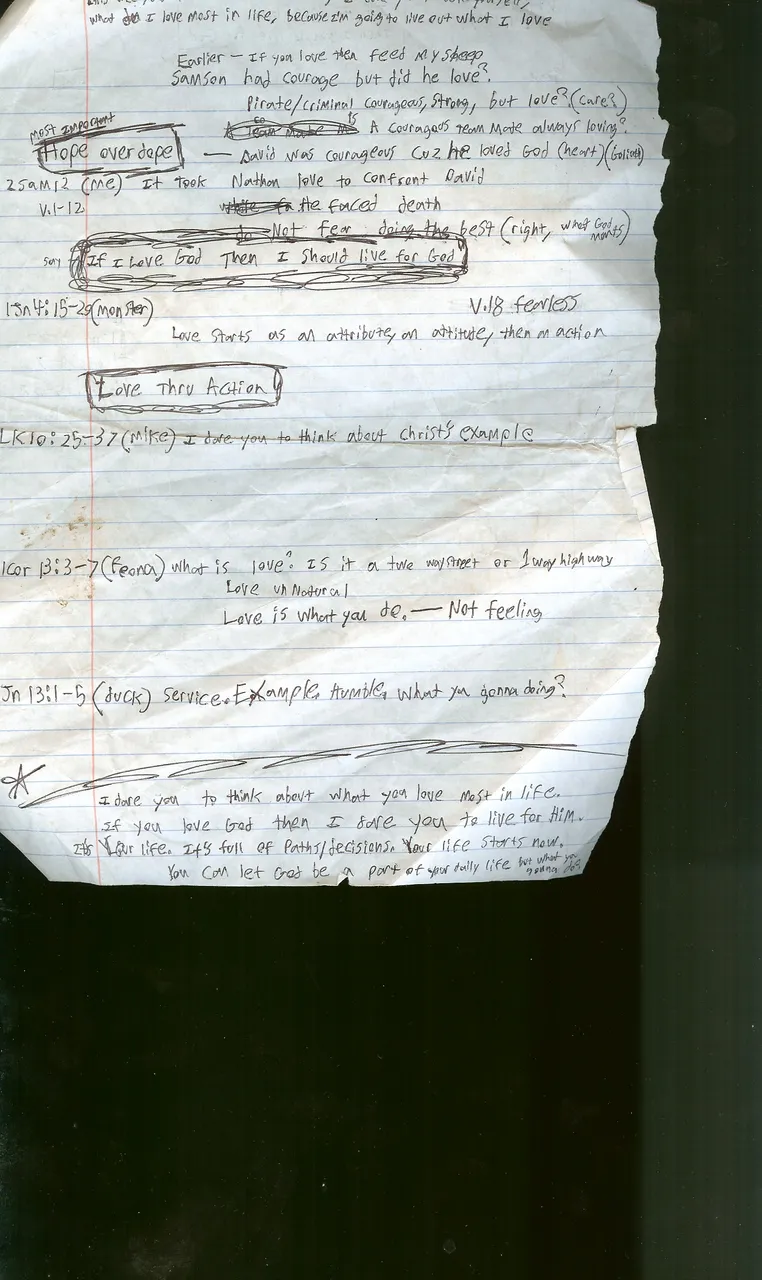 what do I love most in life, because I'm going to live out what I love
Earlier - If you love then feed my sheep
Samson had courage but did he love?
Pirate/criminal courageous, strong, but love? (care?)
most important
A courageous team mate always loving?
Hope over dope
— David was courageous cuz he loved God (heart) (Goliath)
2 Sam 12 (me) It took Nathan love to confront David
v.1-12
He faced death
do Not fear doing the best (right, what God wants)
say If I Love God Then I should live for God
1 Jn 4:15-29 (monster)
v.18 fearless
Love starts as an attribute, an attitude, then an action
Love Thru Action
LK 10:25-37 (Mike) I dare you to think about Christ's example
1 Cor 13:3-7 (Feona) What is love? Is it a two way street or 1 way highway
Love unNatural
Love is what you do. — Not feeling
Jn 13:1-5 (duck) Service. Example. Humble. What you gonna doing?
I dare you to think about what you love most in life.
If you love God then I dare you to live for Him.
It's Your life. It's full of Paths/decisions. Your life starts now.
You can let God be a part of your daily life but what you gonna do?